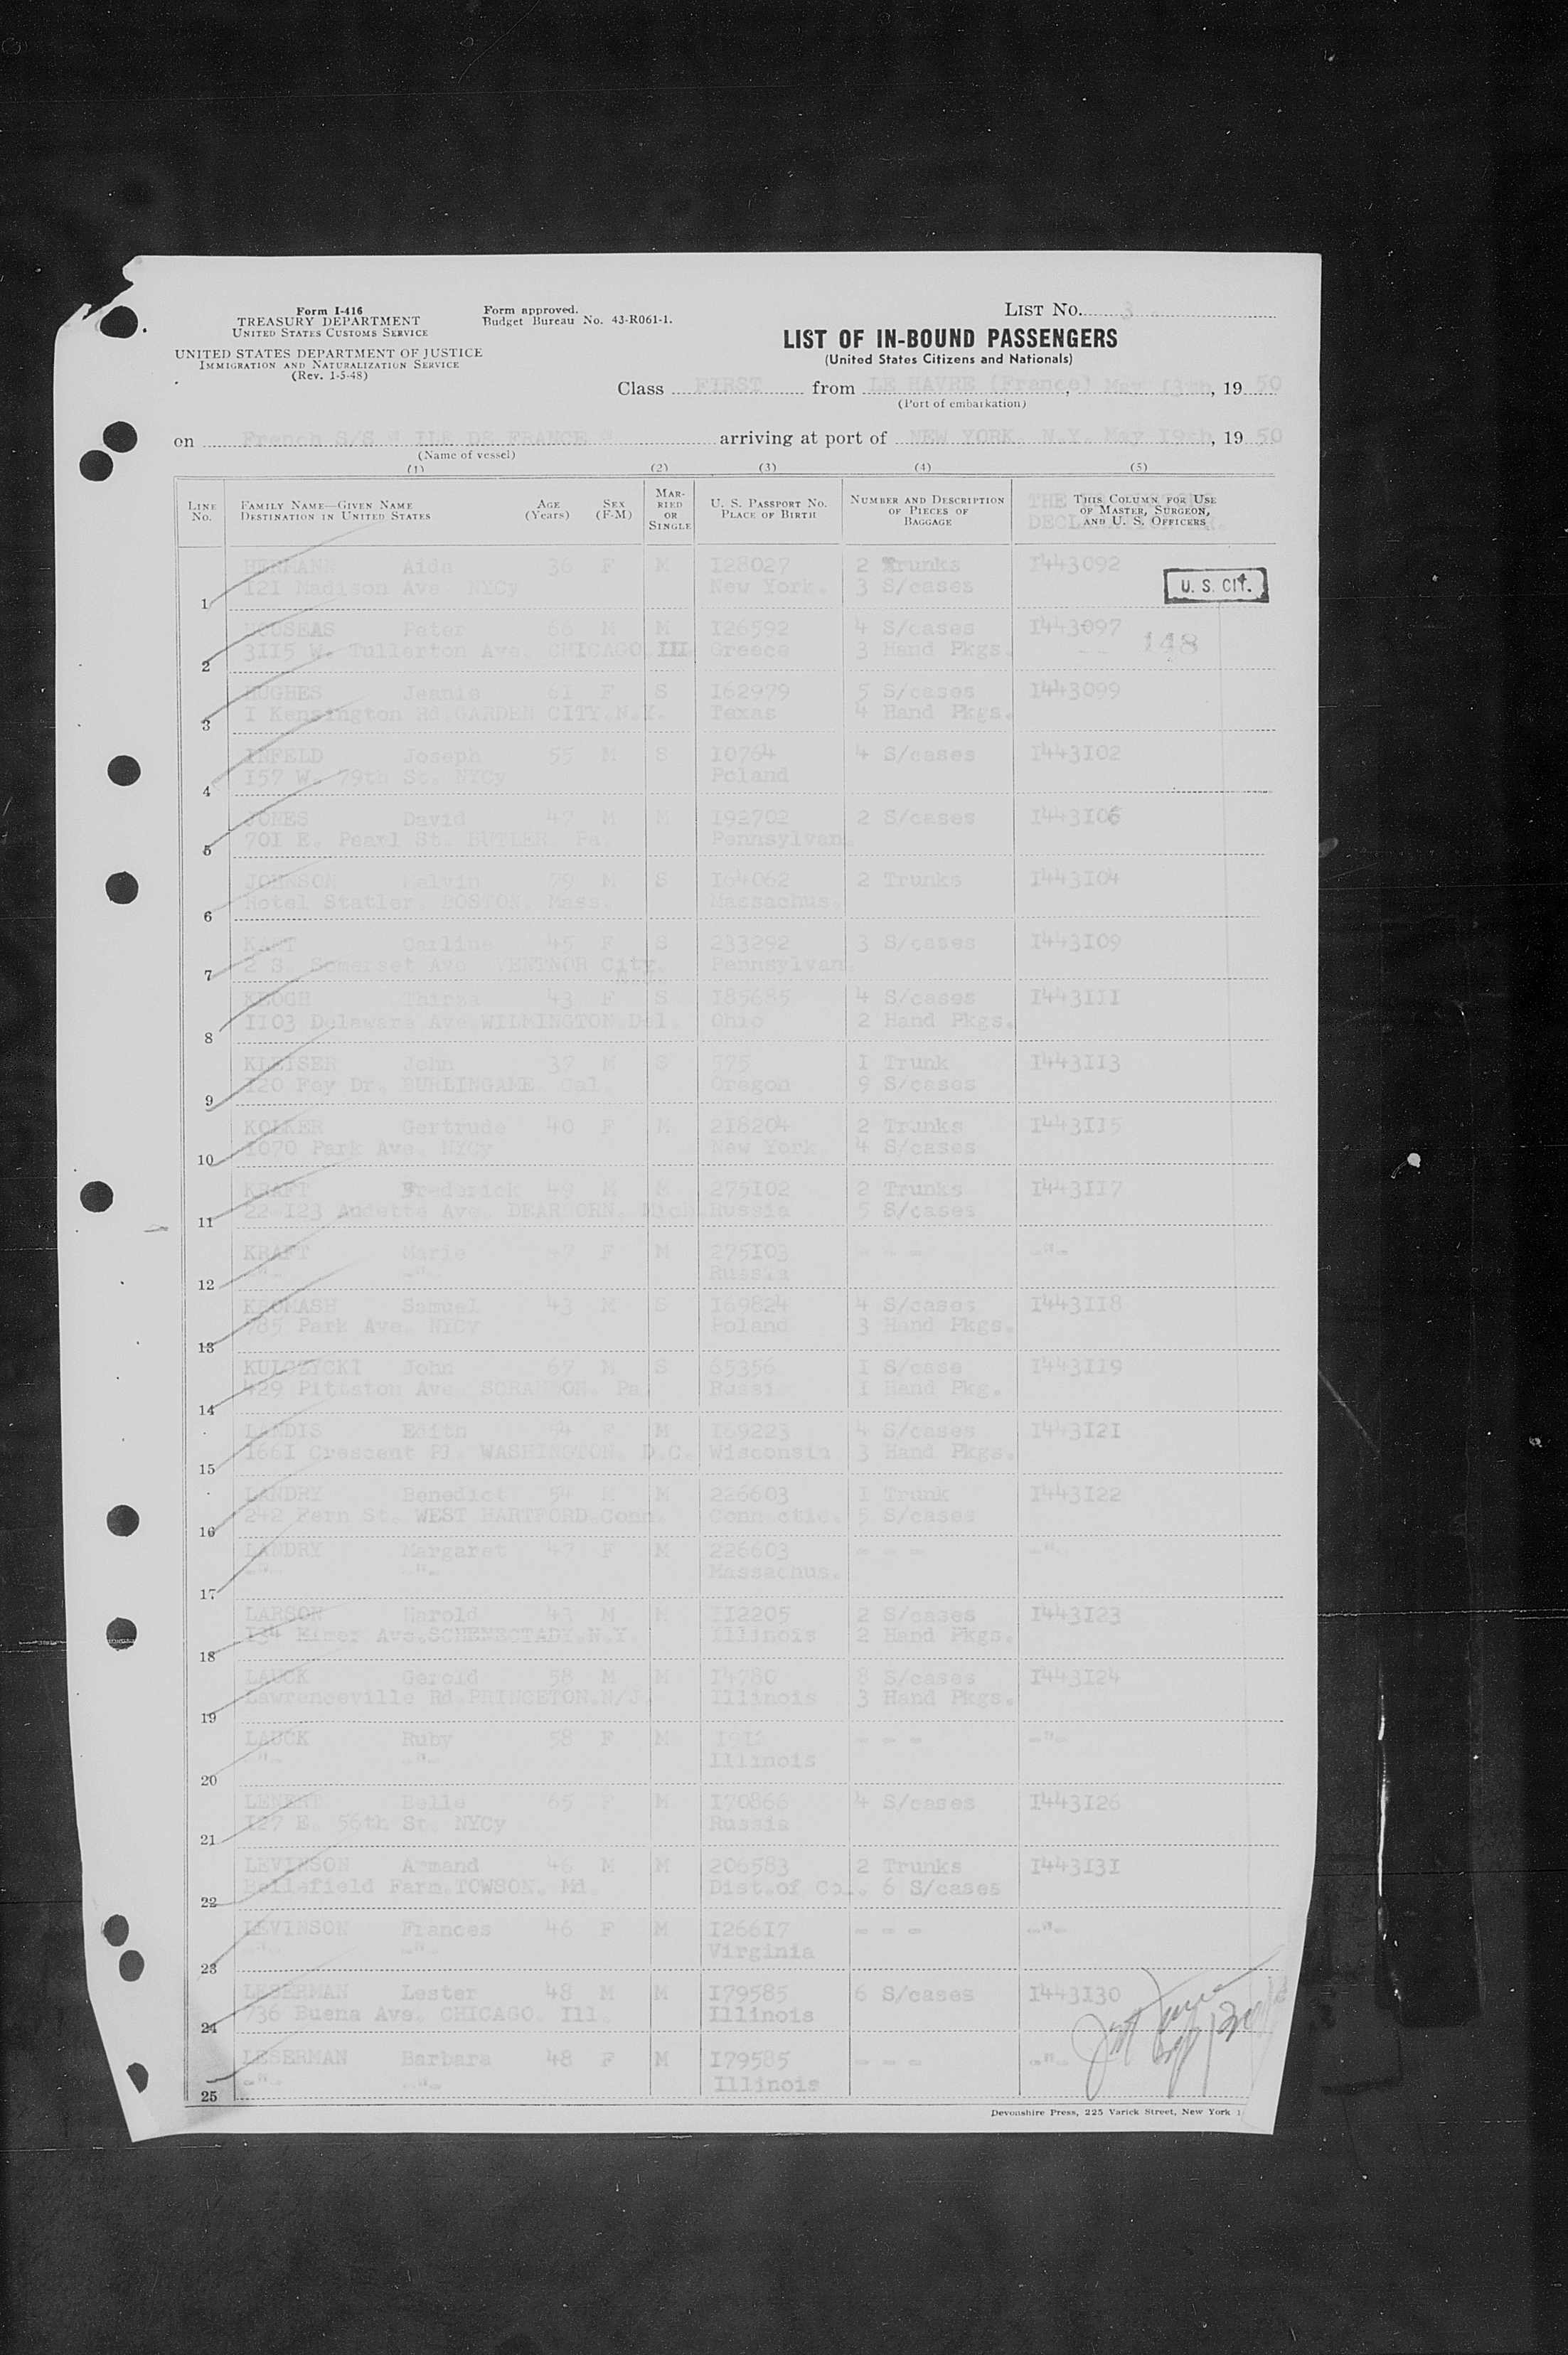 Form I-416
TREASURY DEPARTMENT
UNITED STATES CUSTOMS SERVICE
UNITED STATES DEPARTMENT OF JUSTICE
IMMIGRATION AND NATURALIZATION SERVICE
(Rev. 1-5-48)
Form approved.
Budget Bureau No. 43-R061-1.
LIST No. 3
LIST OF IN-BOUND PASSENGERS
(United States Citizens and Nationals)
Class FIRST from LE HAVRE (France), May 13th, 19 50
(Port of embarkation)
on French S/S " ILE DE FRANCE " arriving at port of NEW YORK. N.Y. May 19th, 19 50
(Name of vessel)
(1) (2) (3) (4) (5)
LINE No. FAMILY NAME—GIVEN NAME DESTINATION IN UNITED STATES AGE (Years) SEX (F-M) MARRIED OR SINGLE U. S. PASSPORT No. PLACE OF BIRTH NUMBER AND DESCRIPTION OF PIECES OF BAGGAGE THIS COLUMN FOR USE OF MASTER, SURGEON, AND U. S. OFFICERS
HERMANN Aida 36 F M I28027 2 Trunks I443092
1 I2I Madison Ave. NYCy New York. 3 S/cases U. S. CIT.
HOUSEAS Peter 66 M M I26592 4 S/cases I443097
2 3II5 W. Tullerton Ave. CHICAGO Ill Greece 3 Hand Pkgs. 148
HUGHES Jeanie 61 F S I62979 5 S/cases I443099
3 I Kensington Rd.GARDEN CITY.N.Y. Texas 4 Hand Pkgs.
INFELD Joseph 55 M S I0764 4 S/cases I443I02
4 I57 W. 79th St. NYCy Poland
JONES David 47 M M I92702 2 S/cases I443I06
5 70I E. Pearl St. BUTLER. Pa. Pennsylvan
JOHNSON 29 M S I64062 2 Trunks I443I04
6 Hotel Statler. BOSTON. Mass. Massachus.
Carline 45 F S 233292 3 S/cases I443I09
7 2 S. Somerset Ave VENTNOR City. Pennsylvan
KEOGH 43 F S I85685 4 S/cases I443III
8 II03 Delaware Ave.WILMINGTON.Del. Ohio 2 Hand Pkgs.
John 39 M S 575 I Trunk I443II3
9 I20 Foy Dr. BURLINGAME Cal. Oregon 9 S/cases
KOLKER Gertrude 40 F M 218204 2 Trunks I443II5
10 I070 Park Ave. NYCy New York. 4 S/cases
KRAFT Frederick 49 M M 275I02 2 Trunks I443II7
11 22 I23 Audette Ave. DEARBORN. Mich. Russia 5 S/cases
KRAFT Marie F M 275I03 - - - -"-
12 -"- -"- Russia
Samuel 43 M S I69824 4 S/cases I443II8
13 Park Ave. NYCy Poland 3 Hand Pkgs.
KULCZYCKI John 67 M S 65356 I S/case I443II9
14 429 Pittston Ave. SCRANTON. Pa. Russia I Hand Pkg.
LANDIS Edith 54 F M I69223 4 S/cases I443I2I
15 I66I Crescent Pl. WASHINGTON. D.C. Wisconsin 3 Hand Pkgs.
LANDRY Benedict 54 M M 226603 I Trunk I443I22
16 242 Fern St. WEST HARTFORD.Conn. Connectic. 5 S/cases
LANDRY Margaret 47 F M 226603 - - - -"-
17 -"- -"- Massachus.
LARSON Harold 43 M M II2205 2 S/cases I443I23
18 I34 Ave.SCHENECTADY.N.Y. Illinois 2 Hand Pkgs.
LAUCK Gerold 58 M M I4780 8 S/cases I443I24
19 Lawrenceville Rd.PRINCETON.N/J. Illinois 3 Hand Pkgs.
LAUCK Ruby 58 F M - - - -"-
20 -"- -"- Illinois
Bella 65 F M I70866 4 S/cases I443I26
21 I27 E. 56th St. NYCy Russia
LEVINSON Armand 46 M M 206583 2 Trunks I443I3I
22 Bellefield Farm.TOWSON. Md. Dist.of Col. 6 S/cases
LEVINSON Frances 46 F M I266I7 - - - -"-
23 -"- -"- Virginia
LESERMAN Lester 48 M M I79585 6 S/cases I443I30
24 736 Buena Ave. CHICAGO. Ill. Illinois
LESERMAN Barbara 48 F M I79585 - - - -"-
25 -"- -"- Illinois
Devonshire Press, 225 Varick Street, New York 1